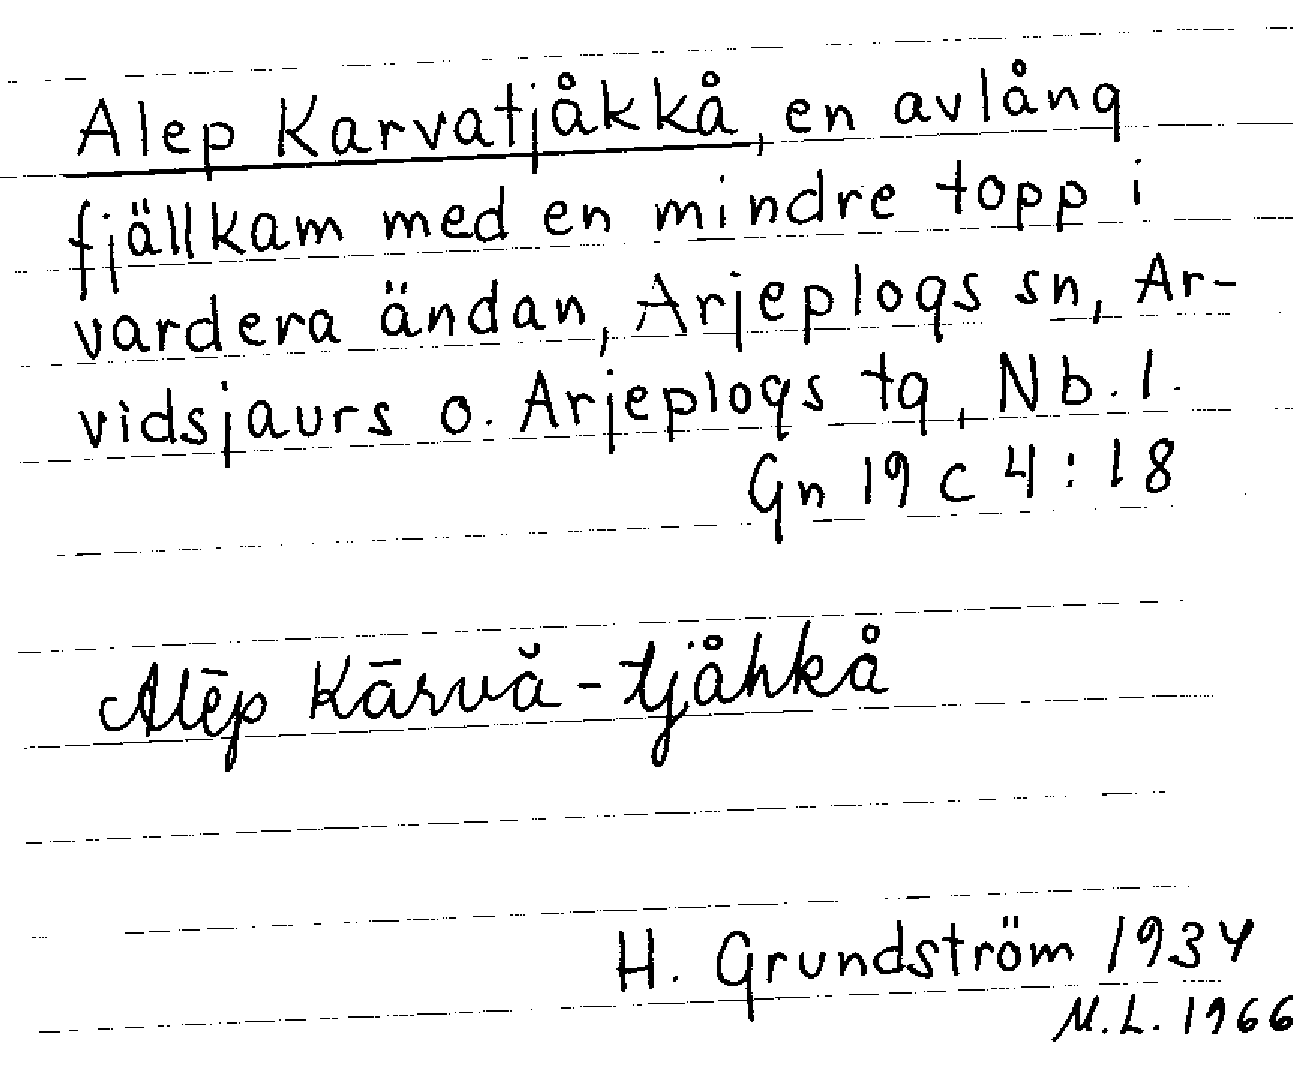 Alep Karvatjåkkå, en avlång
fjällkam med en mindre topp i
vardera ändan, Arjeplogs sn, Ar-
vidsjaurs o. Arjeplogs tg, Nb. l.
Gn 19 c 4:18
Alēp Kārvă-tjåhkå
H. Grundström 1934
M.L. 1966